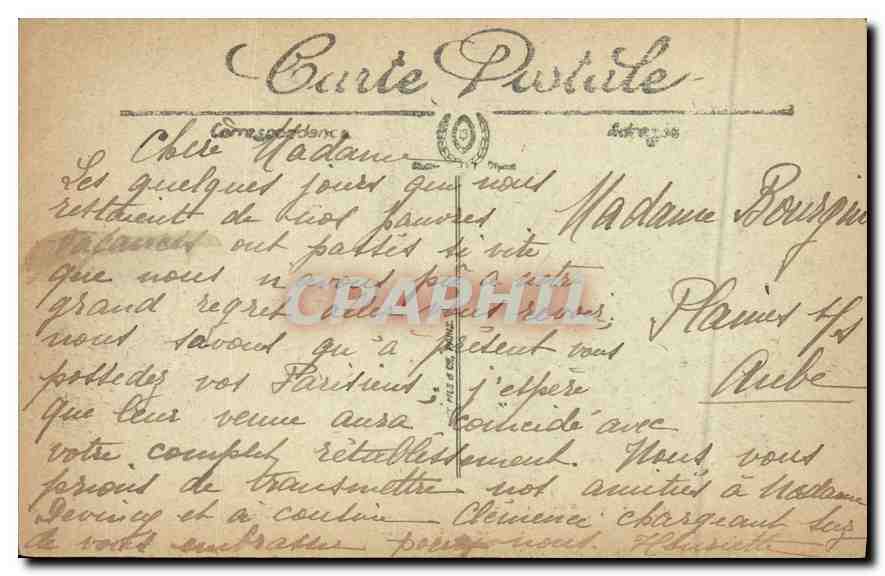 Carte Postale
Correspondance
Adresse
Chere Madame
Les quelques jours que nous
restaient de nos pauvres
vacances ont passés si vite
que nous n'avons pû à notre
grand regret aller vous revoir,
nous savons qu'à présent vous
possedez vos Parisiens, j'espère
que leur venue aura coïncidé avec
votre complet rétablissement. Nous vous
prions de transmettre nos amitiés à Madame
et à cousine Clémence chargeant
de vous embrasser pour nous. Henriette
Madame Bourgin
Plaines s/s
Aube
CRAPHIL